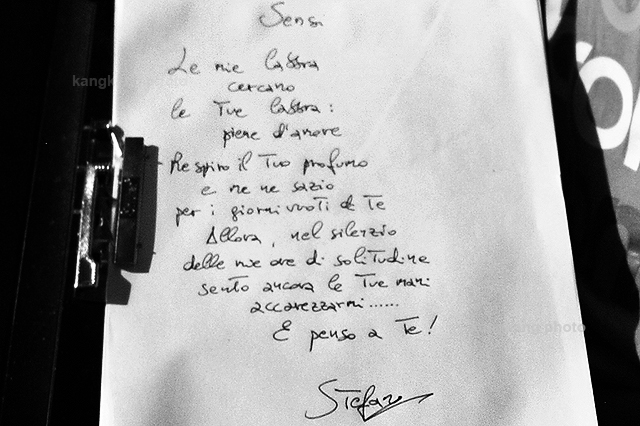 Sensi
Le mie labbra
cercano
le Tue labbra:
piene d'amore
Respiro il Tuo profumo
e me ne sazio
per i giorni vuoti di Te
Allora, nel silenzio
delle mie ore di solitudine
sento ancora le Tue mani
accarezzarmi......
E penso a Te!
Stefano
kangk
photo